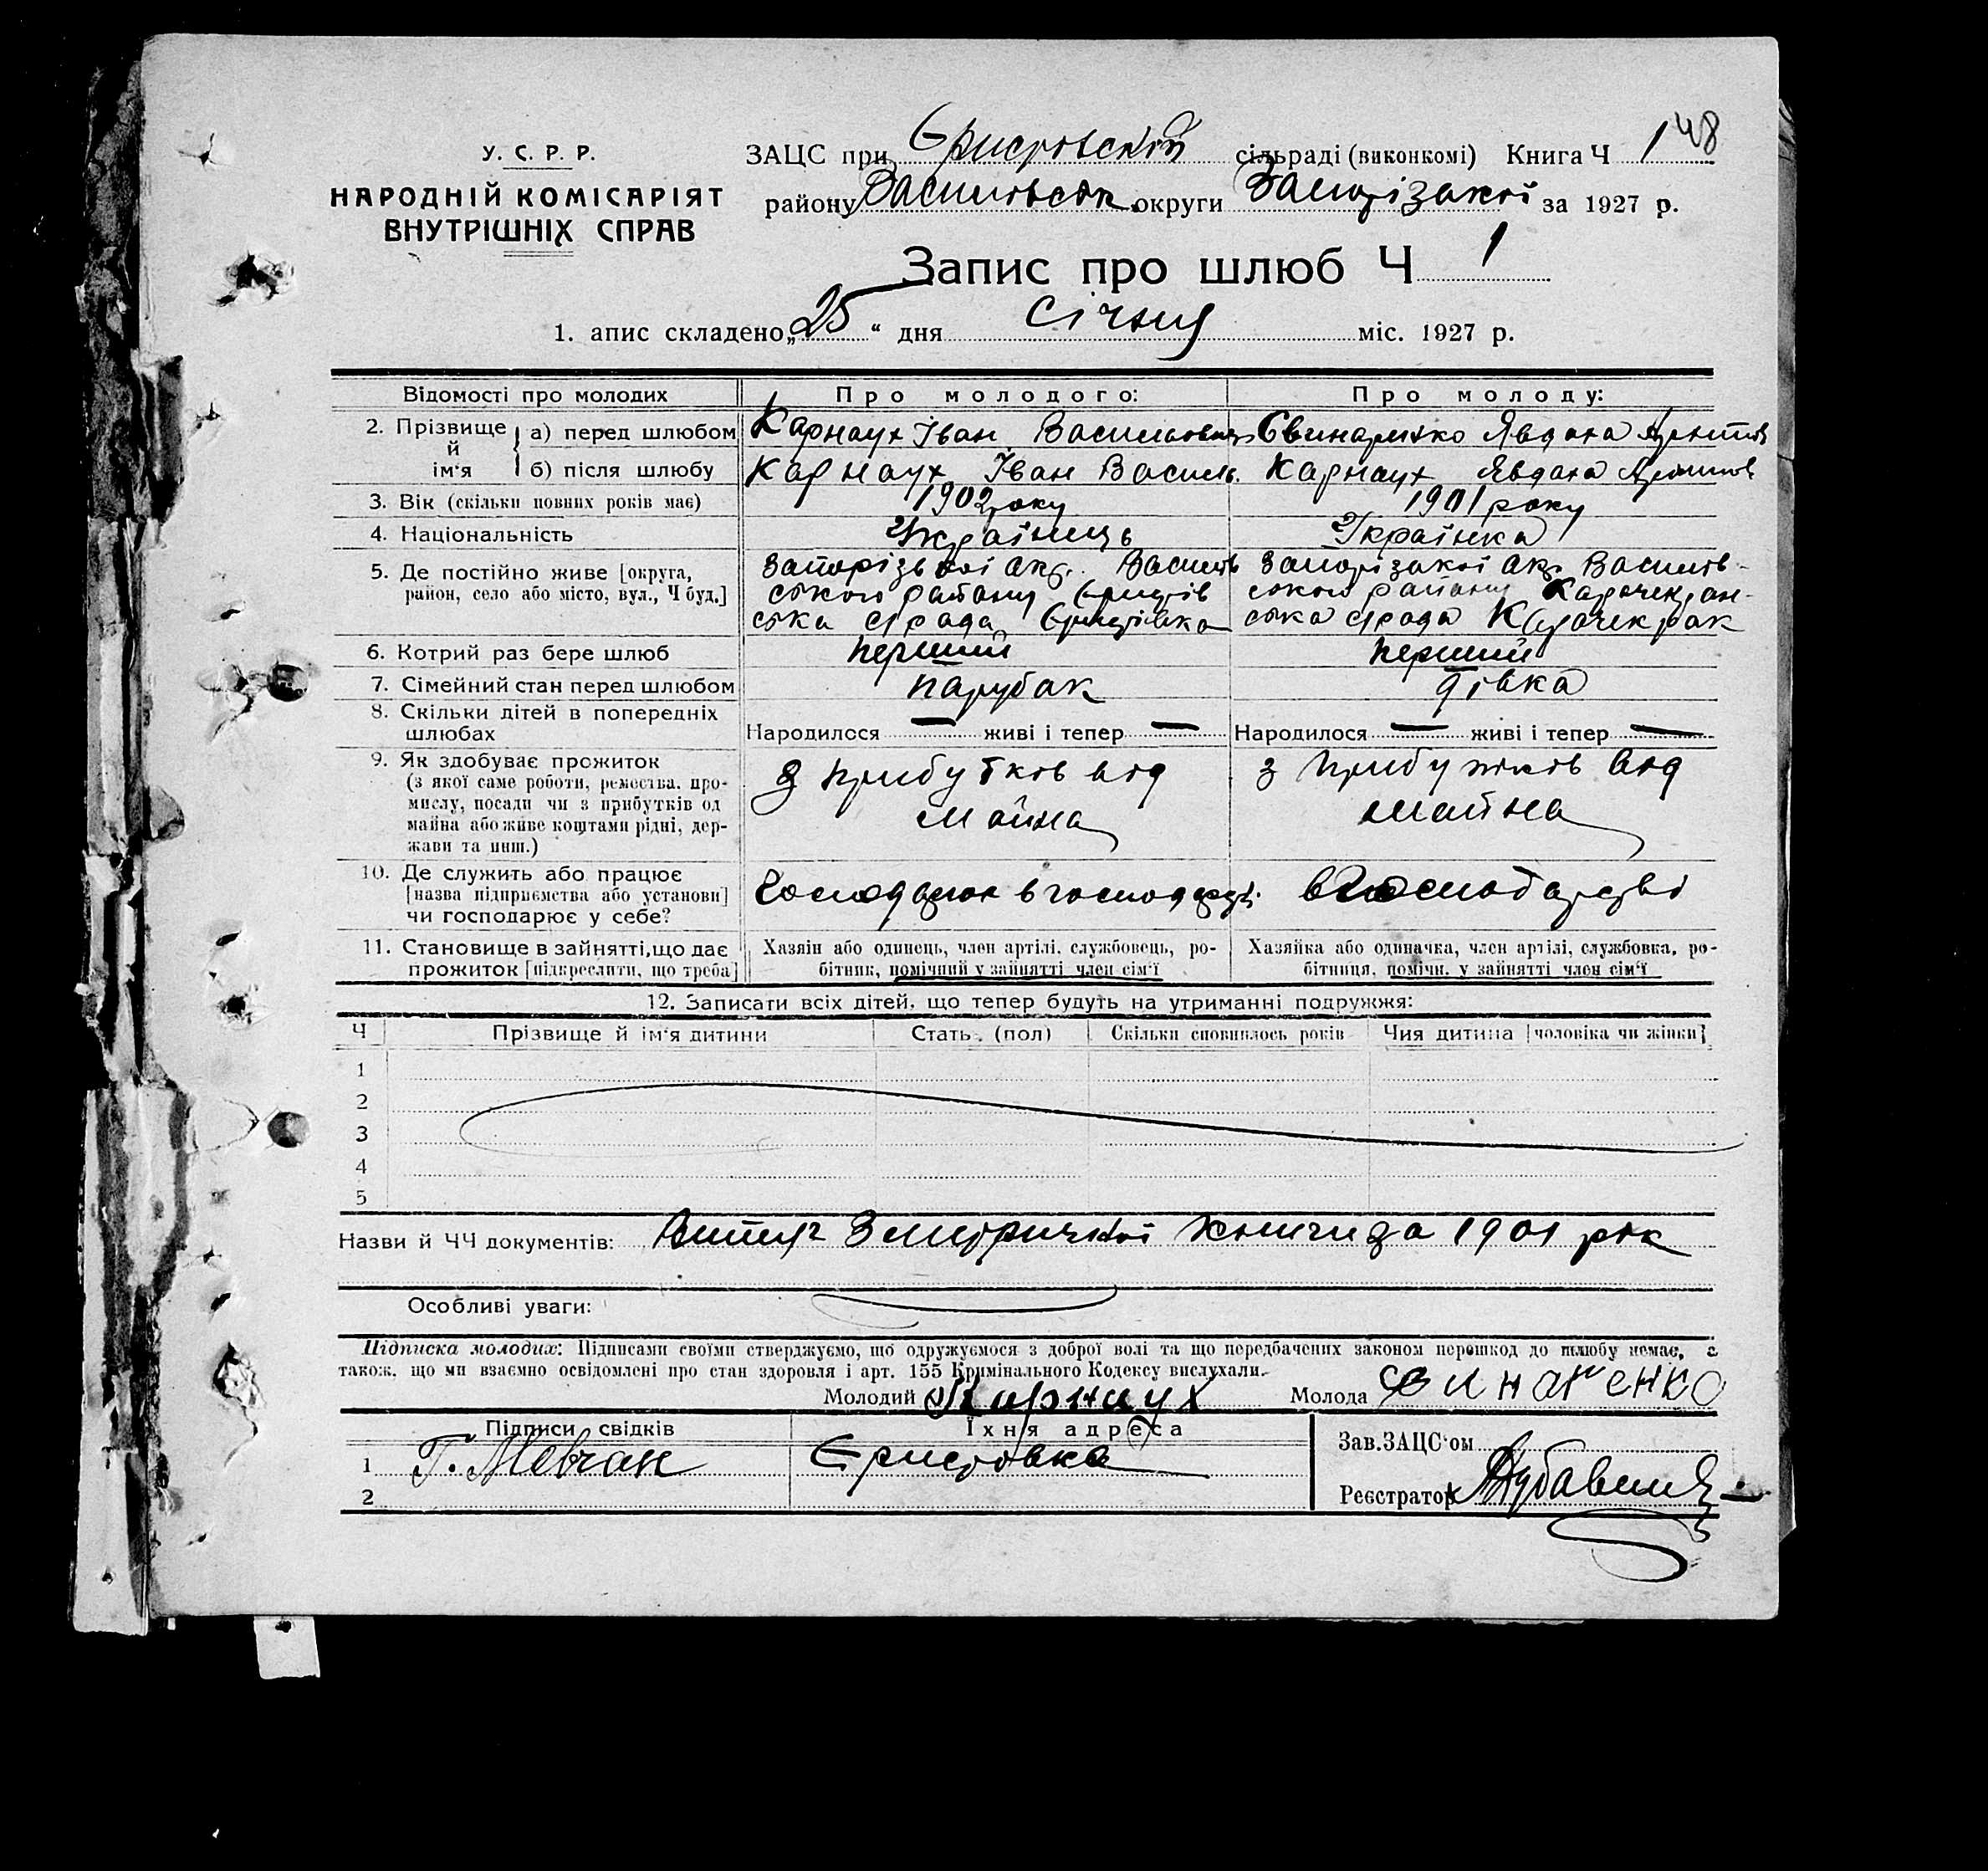 148
У. С. Р. Р.
НАРОДНІЙ КОМІСАРІЯТ
ВНУТРІШНІХ СПРАВ
ЗАЦС при Єристовській сільраді (виконкомі) Книга Ч 1
району Василівськ округи Запорізької за 1927 р.
Запис про шлюб Ч 1
1. апис складено „25“ дня січня міс. 1927 р.
Відомості про молодих Про молодого: Про молоду:
2. Прізвище й ім'я а) перед шлюбом Карнаух Іван Васильович Свинаренко Явдоха
б) після шлюбу Карнаух Іван Василь. Карнаух Явдоха
3. Вік (скільки повних років має) 1902 року 1901 року
4. Національність Українець Українка
5. Де постійно живе [округа, район, село або місто, вул., Ч буд.]
Запорізької окр. Василів
ського району Єристів
ська с/рада Єристівка
Запорізької окр. Василів-
ського району Карачекран-
ська с/рада Карачекрак
6. Котрий раз бере шлюб перший перший
7. Сімейний стан перед шлюбом парубак дівка
8. Скільки дітей в попередніх шлюбах Народилося — живі і тепер — Народилося — живі і тепер —
9. Як здобуває прожиток
(з якої саме роботи, ремества, про-
мислу, посади чи з прибутків од
майна або живе коштами рідні, дер-
жави та инш.)
з прибутків від
майна
з прибутків від
майна
10. Де служить або працює
[назва підприємства або установи]
чи господарює у себе?
в господарстві
11. Становище в зайнятті, що дає
прожиток [підкреслити, що треба]
Хазяїн або одинець, член артілі, службовець, ро-
бітник, помічний у зайнятті член сім'ї
Хазяйка або одиначка, член артілі, службовка, ро-
бітниця, помічн. у зайнятті член сім'ї
12. Записати всіх дітей, що тепер будуть на утриманні подружжя:
Ч Прізвище й ім'я дитини Стать (пол) Скільки сповнилось років Чия дитина [чоловіка чи жінки]
1
2
3
4
5
Назви й ЧЧ документів: Витяг з метричної книги за 1901 рік
Особливі уваги:
Підписка молодих: Підписами своїми стверджуємо, що одружуємося з доброї волі та що передбачених законом перешкод до шлюбу немає, а
також, що ми взаємно освідомлені про стан здоровля і арт. 155 Кримінального Кодексу вислухали.
Молодий Карнаух Молода Свинаренко
Підписи свідків Їхня адреса
1 Г. Мовчан Єристовка
2
Зав. ЗАЦС'ом
Реєстратор